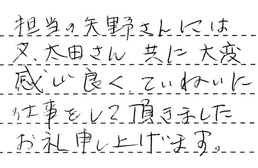 担当の矢野さんには
又、太田さん 共に 大変
感じ良く、ていねいに
仕事をして頂きました
お礼申し上げます。